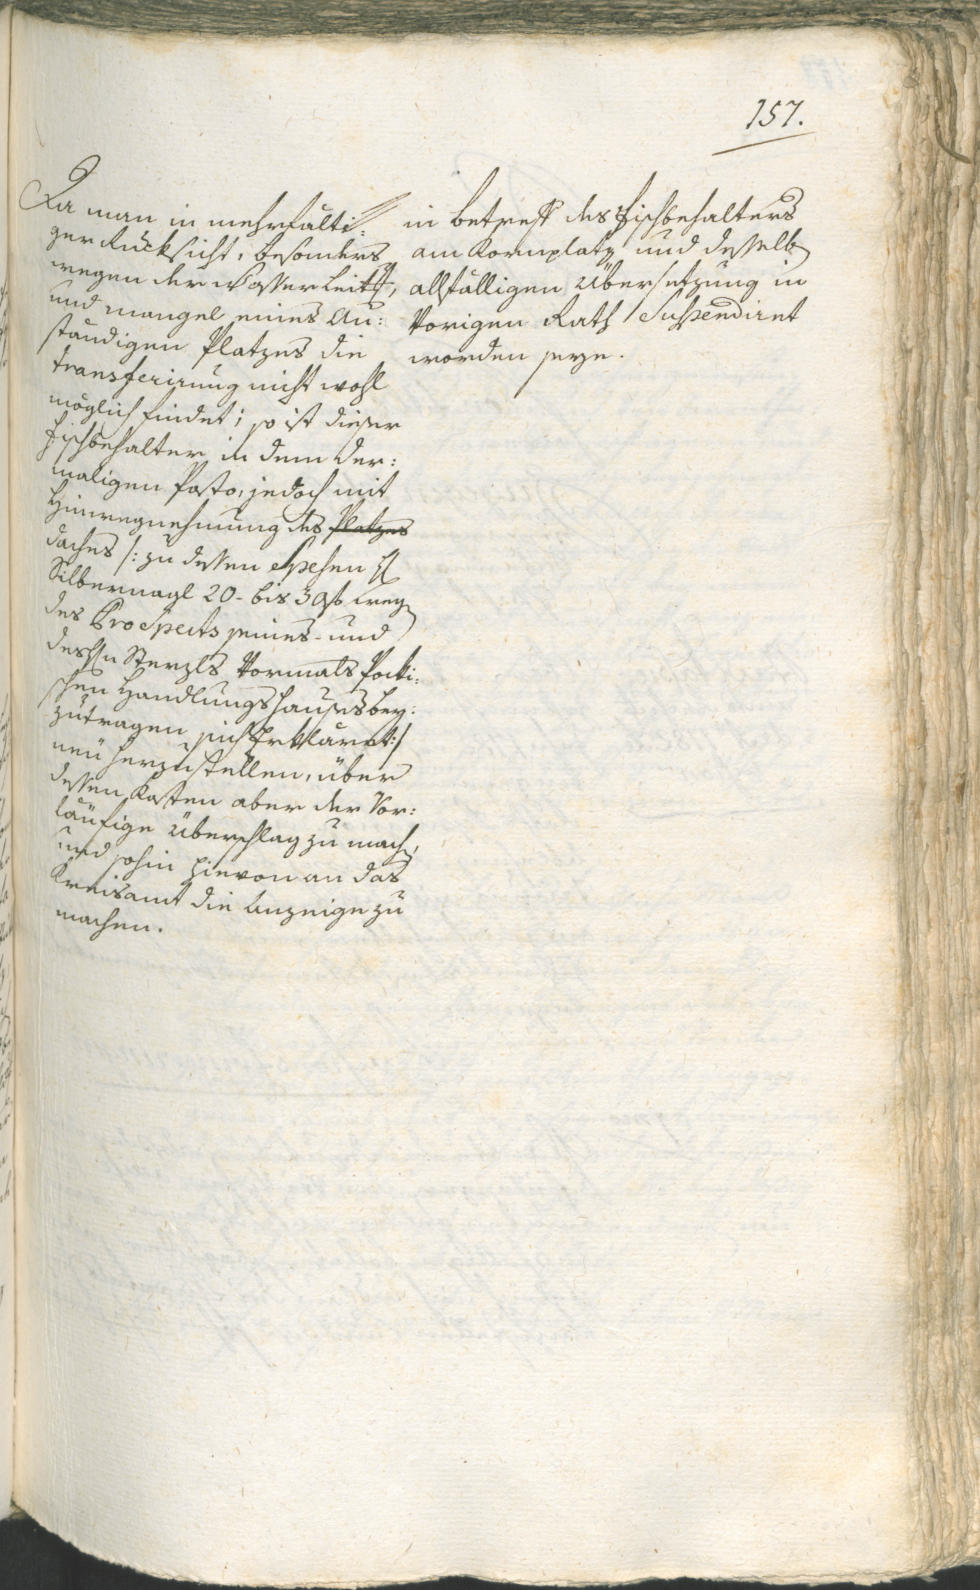 157.
Da man in mehrfälti=
ger Rücksicht, besonders
wegen der Wasserleitg,
und mangel eines An=
ständigen Platzes die
transferirung nicht wohl
möglich findet; so ist dieser
Fischbehalter in dem der=
maligen Posto, jedoch mit
Hinwegnehmung des Platzes
daches /: zu dessen Spesen H
Silbernagl 20- bis 30 f weg
des Prospects seines- und
des H Sterzls Vormals Pocki=
schen Handlungshauses bey=
zutragen sich Erkläret :/
neu herzustellen, über
dessen Kosten aber der Vor=
läufige Überschlag zu mach,
und sohin hievon an das
Kreisamt die Anzeige zu
machen.
in betreff des Fischbehalters
am Kornplatz und desselb
allfälligen Übersetzung in
Vorigen Rath Suspendiret
worden seye.